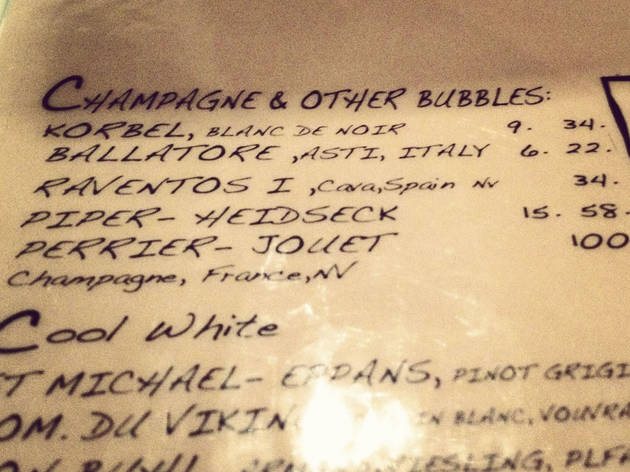 CHAMPAGNE & OTHER BUBBLES:
KORBEL, BLANC DE NOIR 9. 34.
BALLATORE, ASTI, ITALY 6. 22.
RAVENTOS I, Cava, Spain NV 34.
PIPER-HEIDSECK 15. 58.
PERRIER-JOUET 100
Champagne, France, NV
Cool White
T MICHAEL-EPPANS, PINOT GRIGI
OM. DU VIKIN IN BLANC, VOUVRA
RIESLING, PLFA